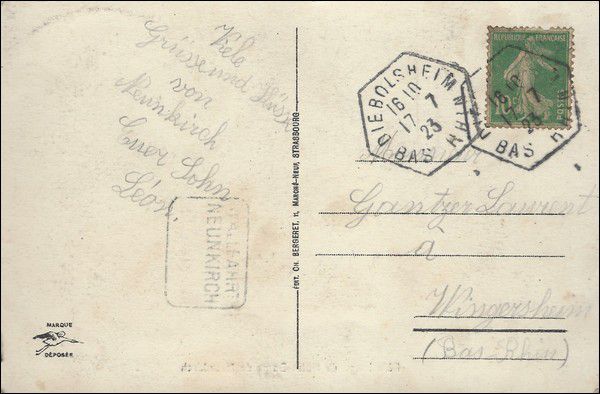 Viele
Grüsse und Küsse
von
Neunkirch
Euer Sohn
Léon
WALLFAHRT
NEUNKIRCH
MARQUE
DÉPOSÉE
ÉDIT. CH. BERGERET, 11, MARCHÉ-NEUF, STRASBOURG
RÉPUBLIQUE FRANÇAISE
POSTES
DIEBOLSHEIM
16 10
17 - 7
23
BAS RHIN
16 10
17 - 7
23
BAS RHIN
Monsieur
Gantzer Laurent
a
Wingersheim
(Bas-Rhin)